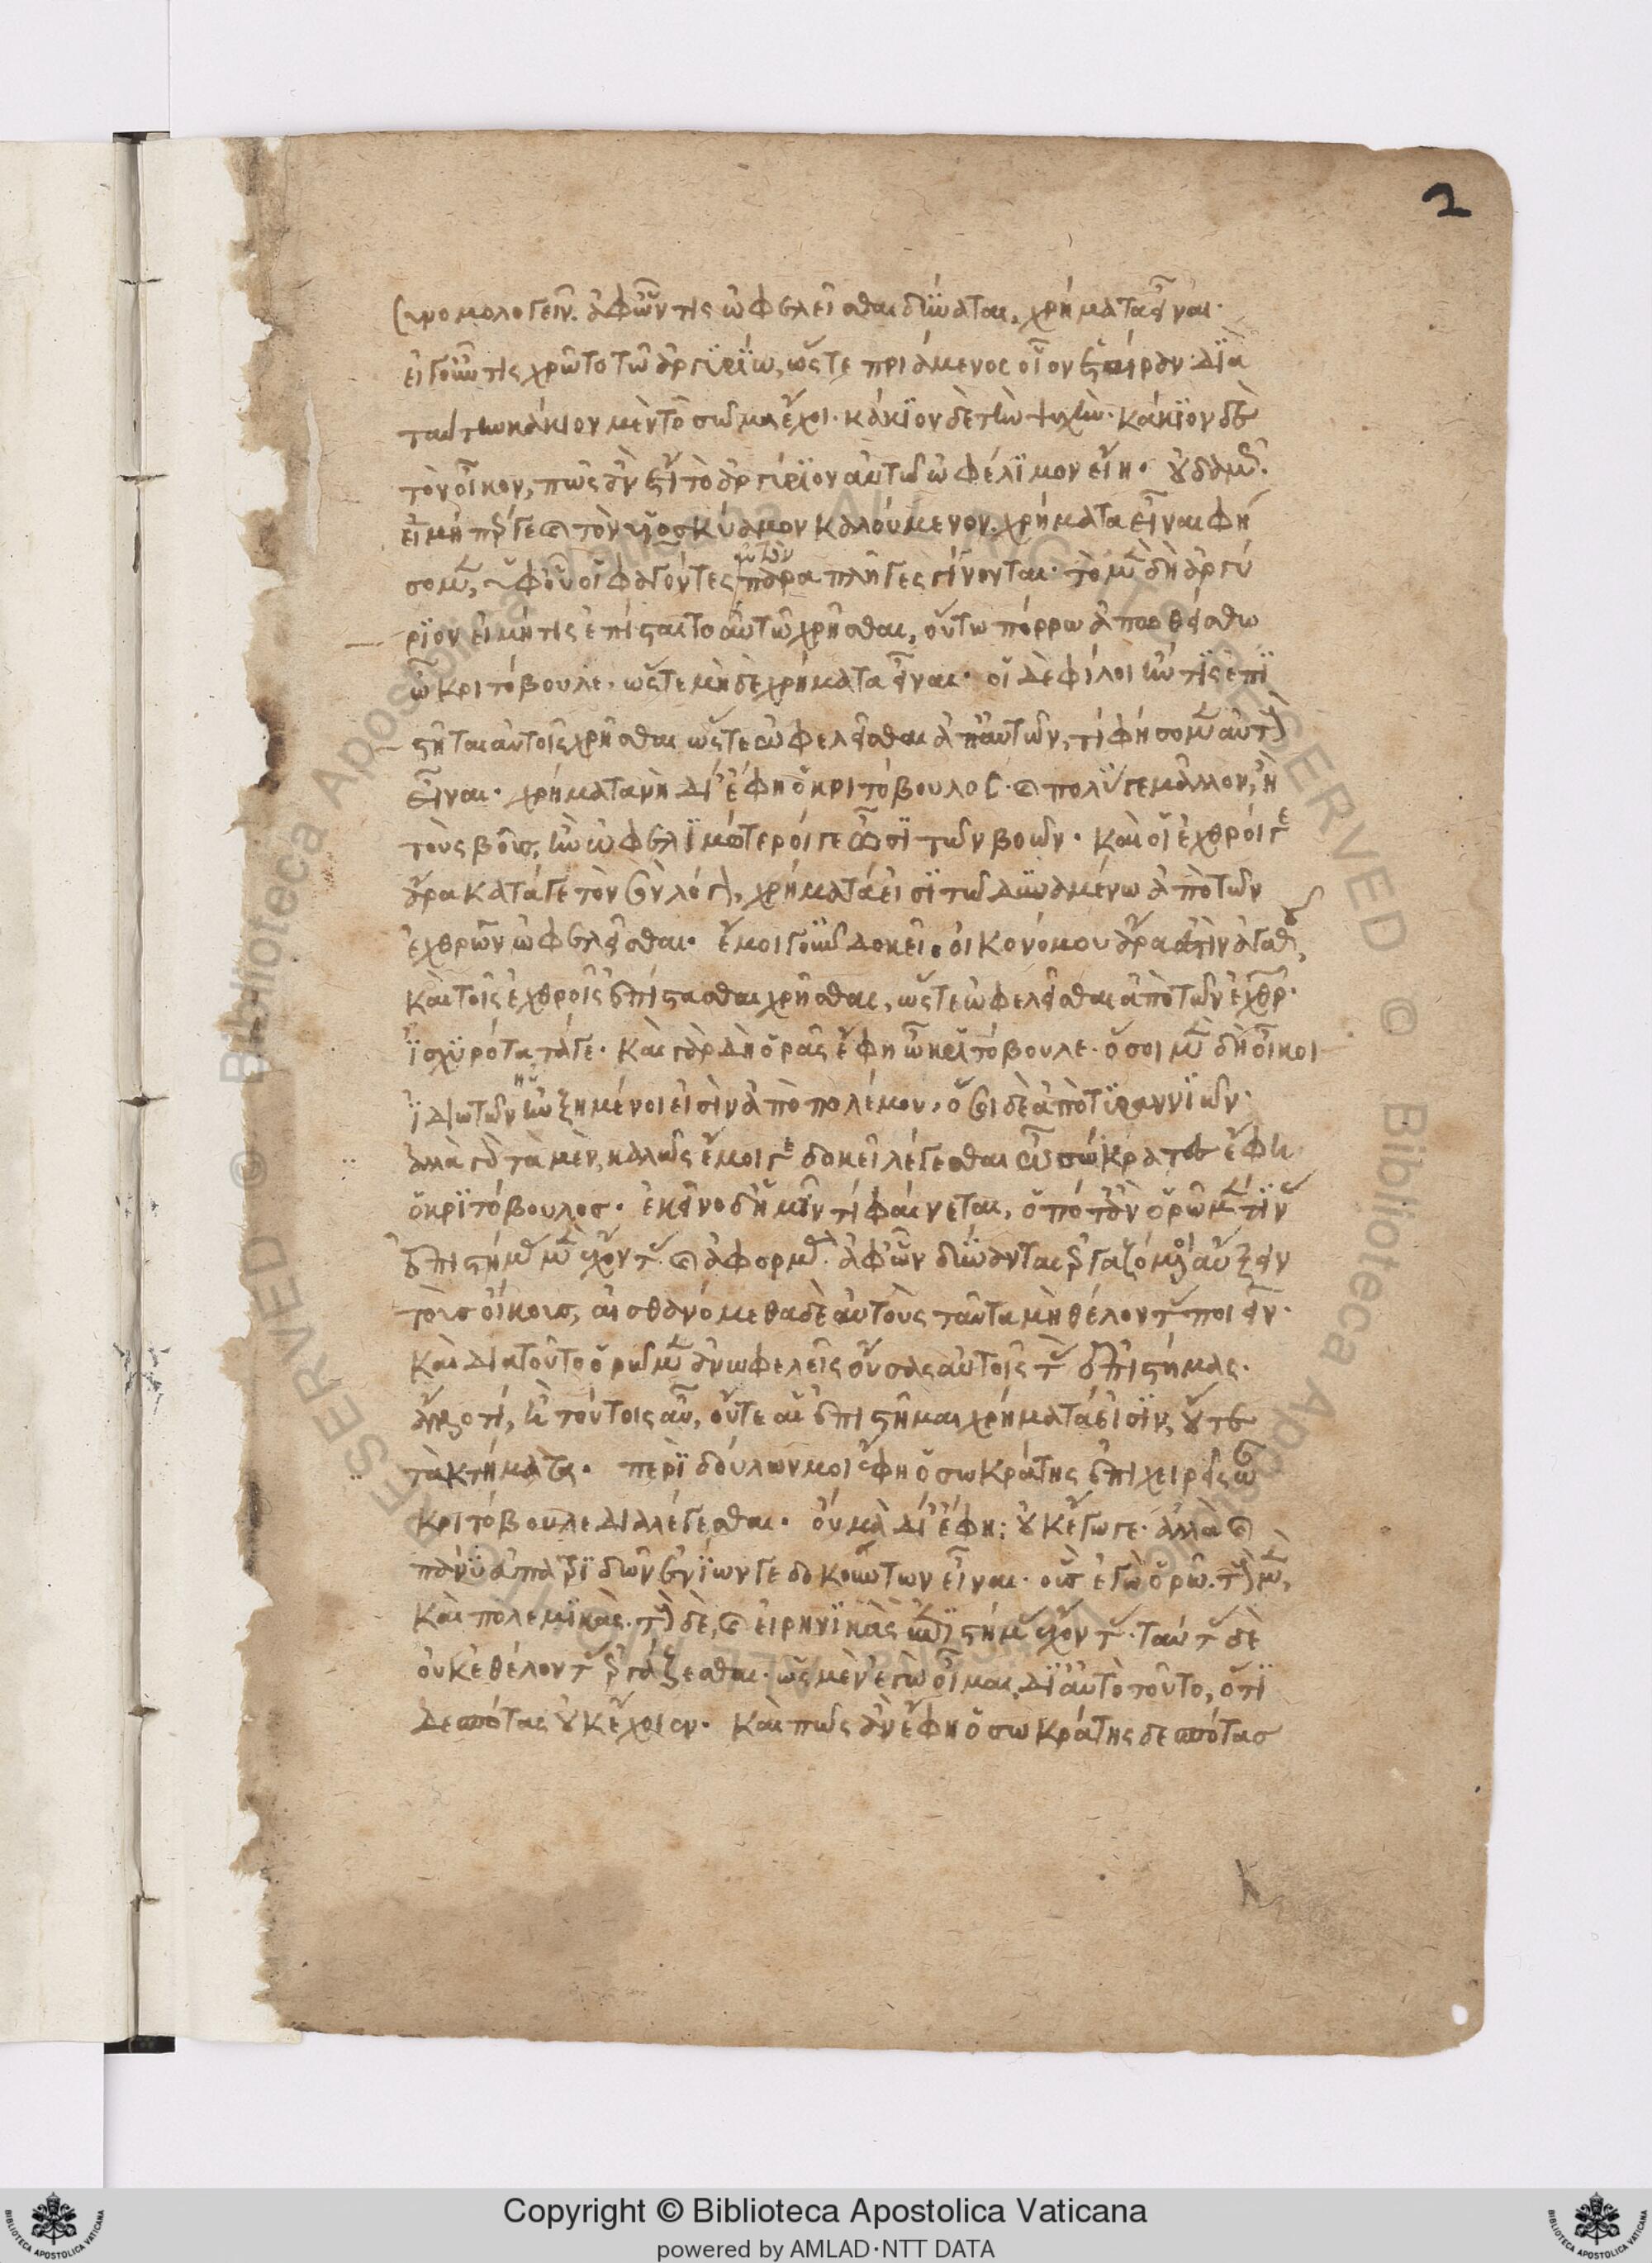 2
ὁμολογεῖν. ἀφ' ὧν τις ὠφελεῖσθαι δύναται, χρήματα εἶναι·
εἰ γοῦν τις χρῶτο τῶ ἀργυρίω, ὥστε πριάμενος οἷον ἑταίραν· διὰ
ταύτην κάκιον μὲν τὸ σῶμα ἔχοι· κάκιον δὲ τὴν ψυχὴν· κάκιον δὲ
τὸν οἶκον, πῶς ἂν ἔτι τὸ ἀργύριον αὐτῶ ὠφέλιμον εἴη· οὐδαμῶς.
εἰ μή πέρ γε καὶ τὸν ὑοσκύαμον καλούμενον. χρήματα εἶναι φή
σομεν, ὑφ' οὗ οἱ φαγόντες αὐτὸν παραπλῆγες γίνονται· τὸ μὲν δὴ ἀργύ
ριον εἰ μή τις ἐπίσταιτο αὐτῶ χρῆσθαι, οὕτω πόρρω ἀπωθείσθω
ὦ κριτόβουλε. ὥστε μηδὲ χρήματα εἶναι· οἱ δὲ φίλοι ἤν τις ἐπί
στηται αὐτοῖς χρῆσθαι ὥστε ὠφελεῖσθαι ἀπ' αὐτῶν, τί φήσομεν αὐτοὺς
εἶναι· χρήματα νὴ δί' ἔφη ὁ κριτόβουλος· καὶ πολύ γε μᾶλλον, ἢ
τοὺς βοῦς, ἢν ὠφελιμώτεροί γε ὦσι τῶν βοῶν· καὶ οἱ ἐχθροί γε
ἄρα κατά γε τὸν σὸν λόγον, χρήματά εἰσι τῶ δυναμένω ἀπὸ τῶν
ἐχθρῶν ὠφελεῖσθαι· ἔμοι γοῦν δοκεῖ· οἰκονόμου ἄρα ἐστὶν ἀγαθοῦ,
καὶ τοῖς ἐχθροῖς ἐπίστασθαι χρῆσθαι, ὥστε ὠφελεῖσθαι ἀπὸ τῶν ἐχθρῶν·
ἰσχυρότατά γε· καὶ γὰρ δὴ ὁρᾶς ἔφη ὦ κριτόβουλε· ὅσοι μὲν δὴ οἶκοι
ἰδιωτῶν ηὐξημένοι εἰσὶν ἀπὸ πολέμου, ὅσοι δὲ ἀπὸ τυραννιῶν·
ἀλλὰ γὰρ τὰ μὲν, καλῶς ἔμοιγε δοκεῖ λέγεσθαι ὦ σώκρατες ἔφη
ὁ κριτόβουλος· ἐκεῖνο δ' ἡμῖν τί φαίνεται, ὁπόταν ὁρῶμέν τινας
ἐπιστήμας μὲν ἔχοντας καὶ ἀφορμὰς· ἀφ' ὧν δύνανται ἐργαζόμενοι αὔξειν
τοὺς οἴκους, αἰσθανόμεθα δὲ αὐτοὺς ταῦτα μὴ θέλοντας ποιεῖν·
καὶ διὰ τοῦτο ὁρῶμεν ἀνωφελεῖς οὔσας αὐτοῖς τὰς ἐπιστήμας·
ἄλλό τι, ἢ τούτοις αὖ, οὔτε αἱ ἐπιστῆμαι χρήματά εἰσιν, οὔτε
τὰ κτήματα· περὶ δούλων μοι ἔφη ὁ σωκράτης ἐπιχειρεῖς ὦ
κριτόβουλε διαλέγεσθαι· οὐ μὰ δί' ἔφη: οὐκ ἔγωγε· ἀλλὰ καὶ
πάνυ εὐπατριδῶν ἐνίων γε δοκούντων εἶναι· οὓς ἐγὼ ὁρῶ. τοὺς μὲν,
καὶ πολεμικὰς· τοὺς δὲ, καὶ εἰρηνικὰς ἐπιστήμας ἔχοντας· ταύτας δὲ
οὐκ ἐθέλοντας ἐργάζεσθαι· ὡς μὲν ἐγὼ οἶμαι. δι' αὐτὸ τοῦτο, ὅτι
δεσπότας οὐκ ἔχοιεν· καὶ πῶς ἂν ἔφη ὁ σωκράτης δεσπότας
Copyright © Biblioteca Apostolica Vaticana
powered by AMLAD·NTT DATA